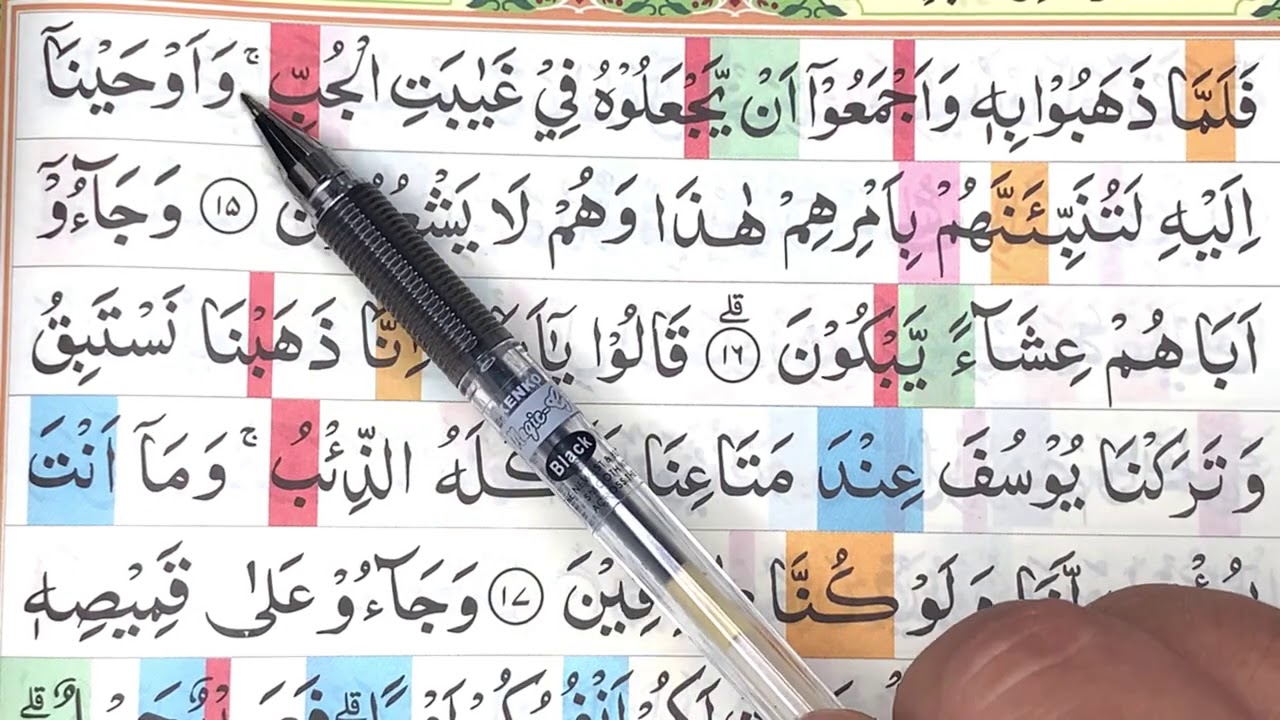 فَلَمَّا ذَهَبُوْا بِهٖ وَاَجْمَعُوْٓا اَنْ يَّجْعَلُوْهُ فِيْ غَيٰبَتِ الْجُبِّ ۚ وَاَوْحَيْنَآ
اِلَيْهِ لَتُنَبِّئَنَّهُمْ بِاَمْرِهِمْ هٰذَا وَهُمْ لَا ١٥ وَجَآءُوْٓ
اَبَاهُمْ عِشَآءً يَّبْكُوْنَ ۗ ١٦ قَالُوْا اِنَّا ذَهَبْنَا نَسْتَبِقُ
وَتَرَكْنَا يُوْسُفَ عِنْدَ مَتَاعِنَا الذِّئْبُ ۚ وَمَآ اَنْتَ
وَلَوْ كُنَّا ١٧ وَجَآءُوْ عَلٰى قَمِيْصِهٖ
KENKO
Black